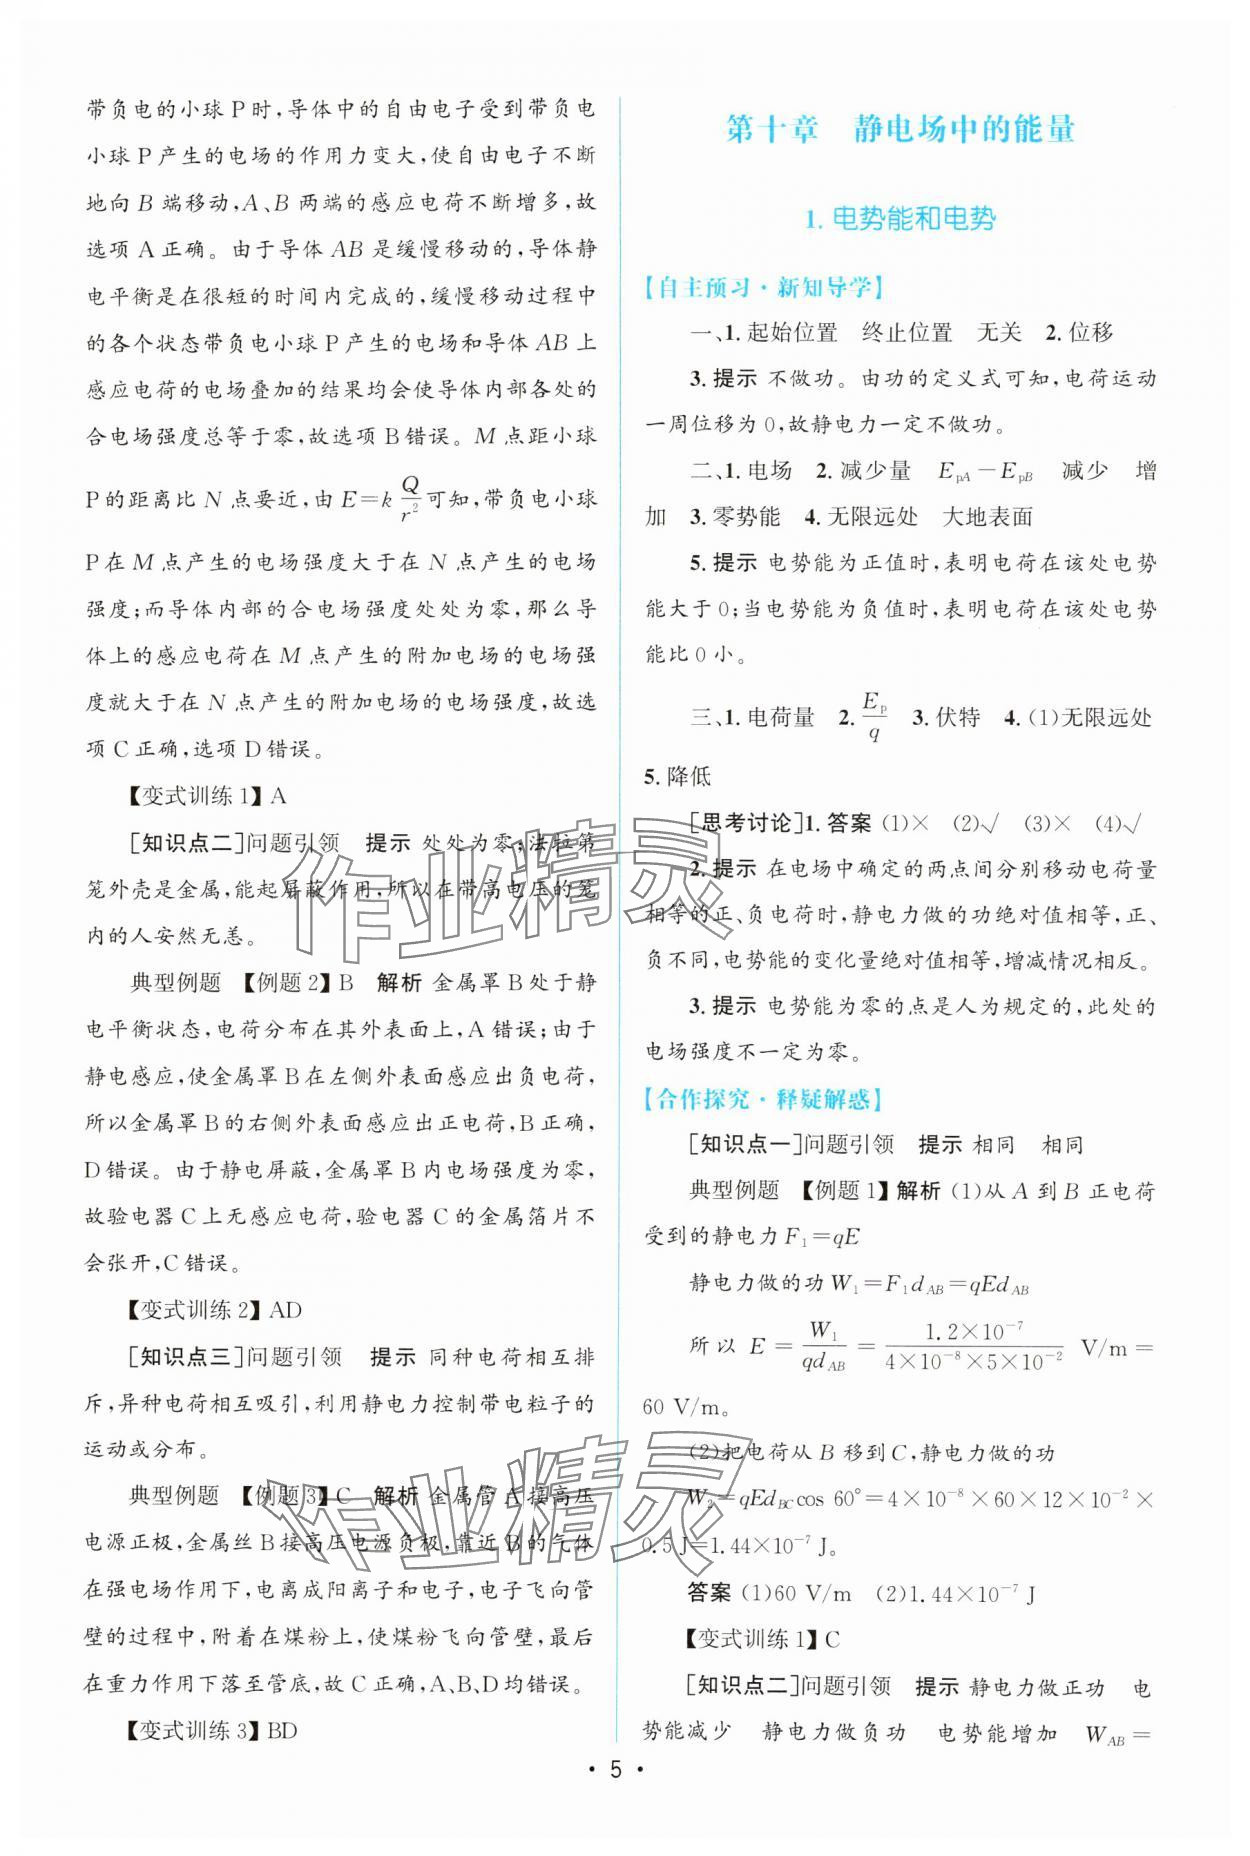 带负电的小球P时,导体中的自由电子受到带负电
小球P产生的电场的作用力变大,使自由电子不断
地向B端移动,A、B两端的感应电荷不断增多,故
选项A正确。由于导体AB是缓慢移动的,导体静
电平衡是在很短的时间内完成的,缓慢移动过程中
的各个状态带负电小球P产生的电场和导体AB上
感应电荷的电场叠加的结果均会使导体内部各处的
合电场强度总等于零,故选项B错误。M点距小球
P的距离比N点要近,由E=k\frac{Q}{r^2}可知,带负电小球
P在M点产生的电场强度大于在N点产生的电场
强度;而导体内部的合电场强度处处为零,那么导
体上的感应电荷在M点产生的附加电场的电场强
度就大于在N点产生的附加电场的电场强度,故选
项C正确,选项D错误。
【变式训练1】A
[知识点二]问题引领 提示 处处为零;法拉第
笼外壳是金属,能起屏蔽作用,所以在带高电压的笼
内的人安然无恙。
典型例题 【例题2】B 解析 金属罩B处于静
电平衡状态,电荷分布在其外表面上,A错误;由于
静电感应,使金属罩B在左侧外表面感应出负电荷,
所以金属罩B的右侧外表面感应出正电荷,B正确,
D错误。由于静电屏蔽,金属罩B内电场强度为零,
故验电器C上无感应电荷,验电器C的金属箔片不
会张开,C错误。
【变式训练2】AD
[知识点三]问题引领 提示 同种电荷相互排
斥,异种电荷相互吸引,利用静电力控制带电粒子的
运动或分布。
典型例题 【例题3】C 解析 金属管A接高压
电源正极,金属丝B接高压电源负极,靠近B的气体
在强电场作用下,电离成阳离子和电子,电子飞向管
壁的过程中,附着在煤粉上,使煤粉飞向管壁,最后
在重力作用下落至管底,故C正确,A、B、D均错误。
【变式训练3】BD
第十章 静电场中的能量
1. 电势能和电势
【自主预习·新知导学】
一、1. 起始位置 终止位置 无关 2. 位移
3. 提示 不做功。由功的定义式可知,电荷运动
一周位移为0,故静电力一定不做功。
二、1. 电场 2. 减少量 E_{pA}-E_{pB} 减少 增
加 3. 零势能 4. 无限远处 大地表面
5. 提示 电势能为正值时,表明电荷在该处电势
能大于0;当电势能为负值时,表明电荷在该处电势
能比0小。
三、1. 电荷量 2. \frac{E_p}{q} 3. 伏特 4. (1)无限远处
5. 降低
[思考讨论]1. 答案 (1)× (2)√ (3)× (4)√
2. 提示 在电场中确定的两点间分别移动电荷量
相等的正、负电荷时,静电力做的功绝对值相等,正、
负不同,电势能的变化量绝对值相等,增减情况相反。
3. 提示 电势能为零的点是人为规定的,此处的
电场强度不一定为零。
【合作探究·释疑解惑】
[知识点一]问题引领 提示 相同 相同
典型例题 【例题1】解析 (1)从A到B正电荷
受到的静电力F₁=qE
静电力做的功W₁=F₁d_{AB}=qEd_{AB}
所以 E=\frac{W₁}{qd_{AB}}=\frac{1.2×10⁻⁷}{4×10⁻⁸×5×10⁻²} V/m=
60 V/m。
(2)把电荷从B移到C,静电力做的功
W₂=qEd_{BC}cos 60°=4×10⁻⁸×60×12×10⁻²×
0.5 J=1.44×10⁻⁷ J。
答案 (1)60 V/m (2)1.44×10⁻⁷ J
【变式训练1】C
[知识点二]问题引领 提示 静电力做正功 电
势能减少 静电力做负功 电势能增加 W_{AB}=
· 5 ·
作业精灵
作业精灵